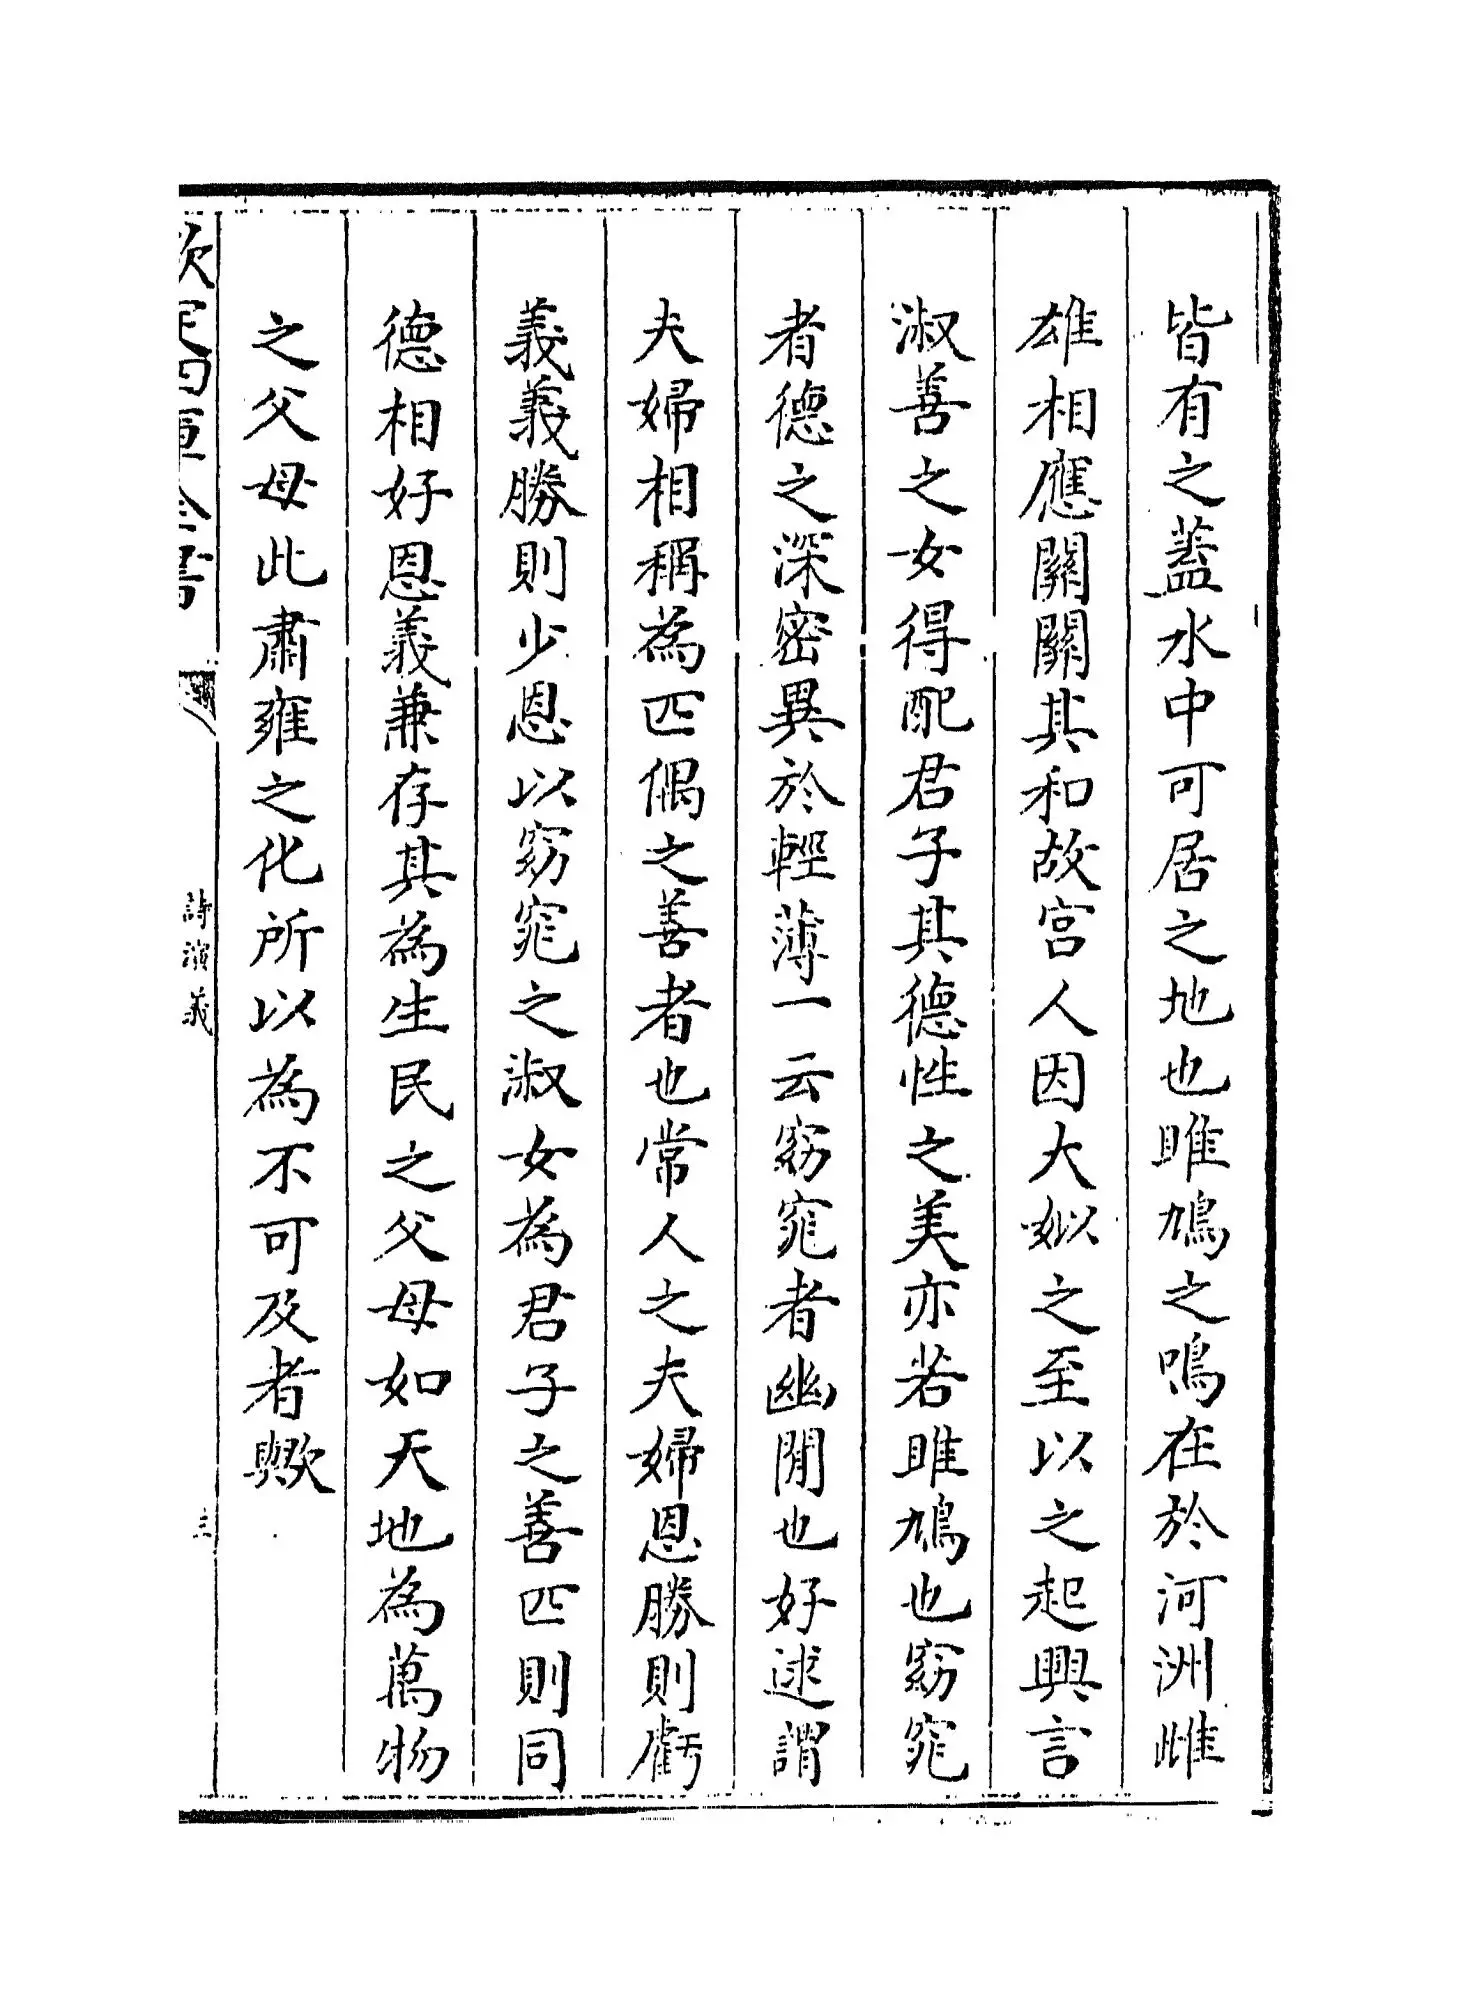 皆有之蓋水中可居之地也雎鳩之鳴在於河洲雌
雄相應關關其和故宫人因大姒之至以之起興言
淑善之女得配君子其德性之美亦若雎鳩也窈窕
者德之深密異於輕薄一云窈窕者幽閒也好逑謂
夫婦相稱為匹偶之善者也常人之夫婦恩勝則虧
義義勝則少恩以窈窕之淑女為君子之善匹則同
德相好恩義兼存其為生民之父母如天地為萬物
之父母此肅雍之化所以為不可及者歟
欽定四庫全書
詩演義
三